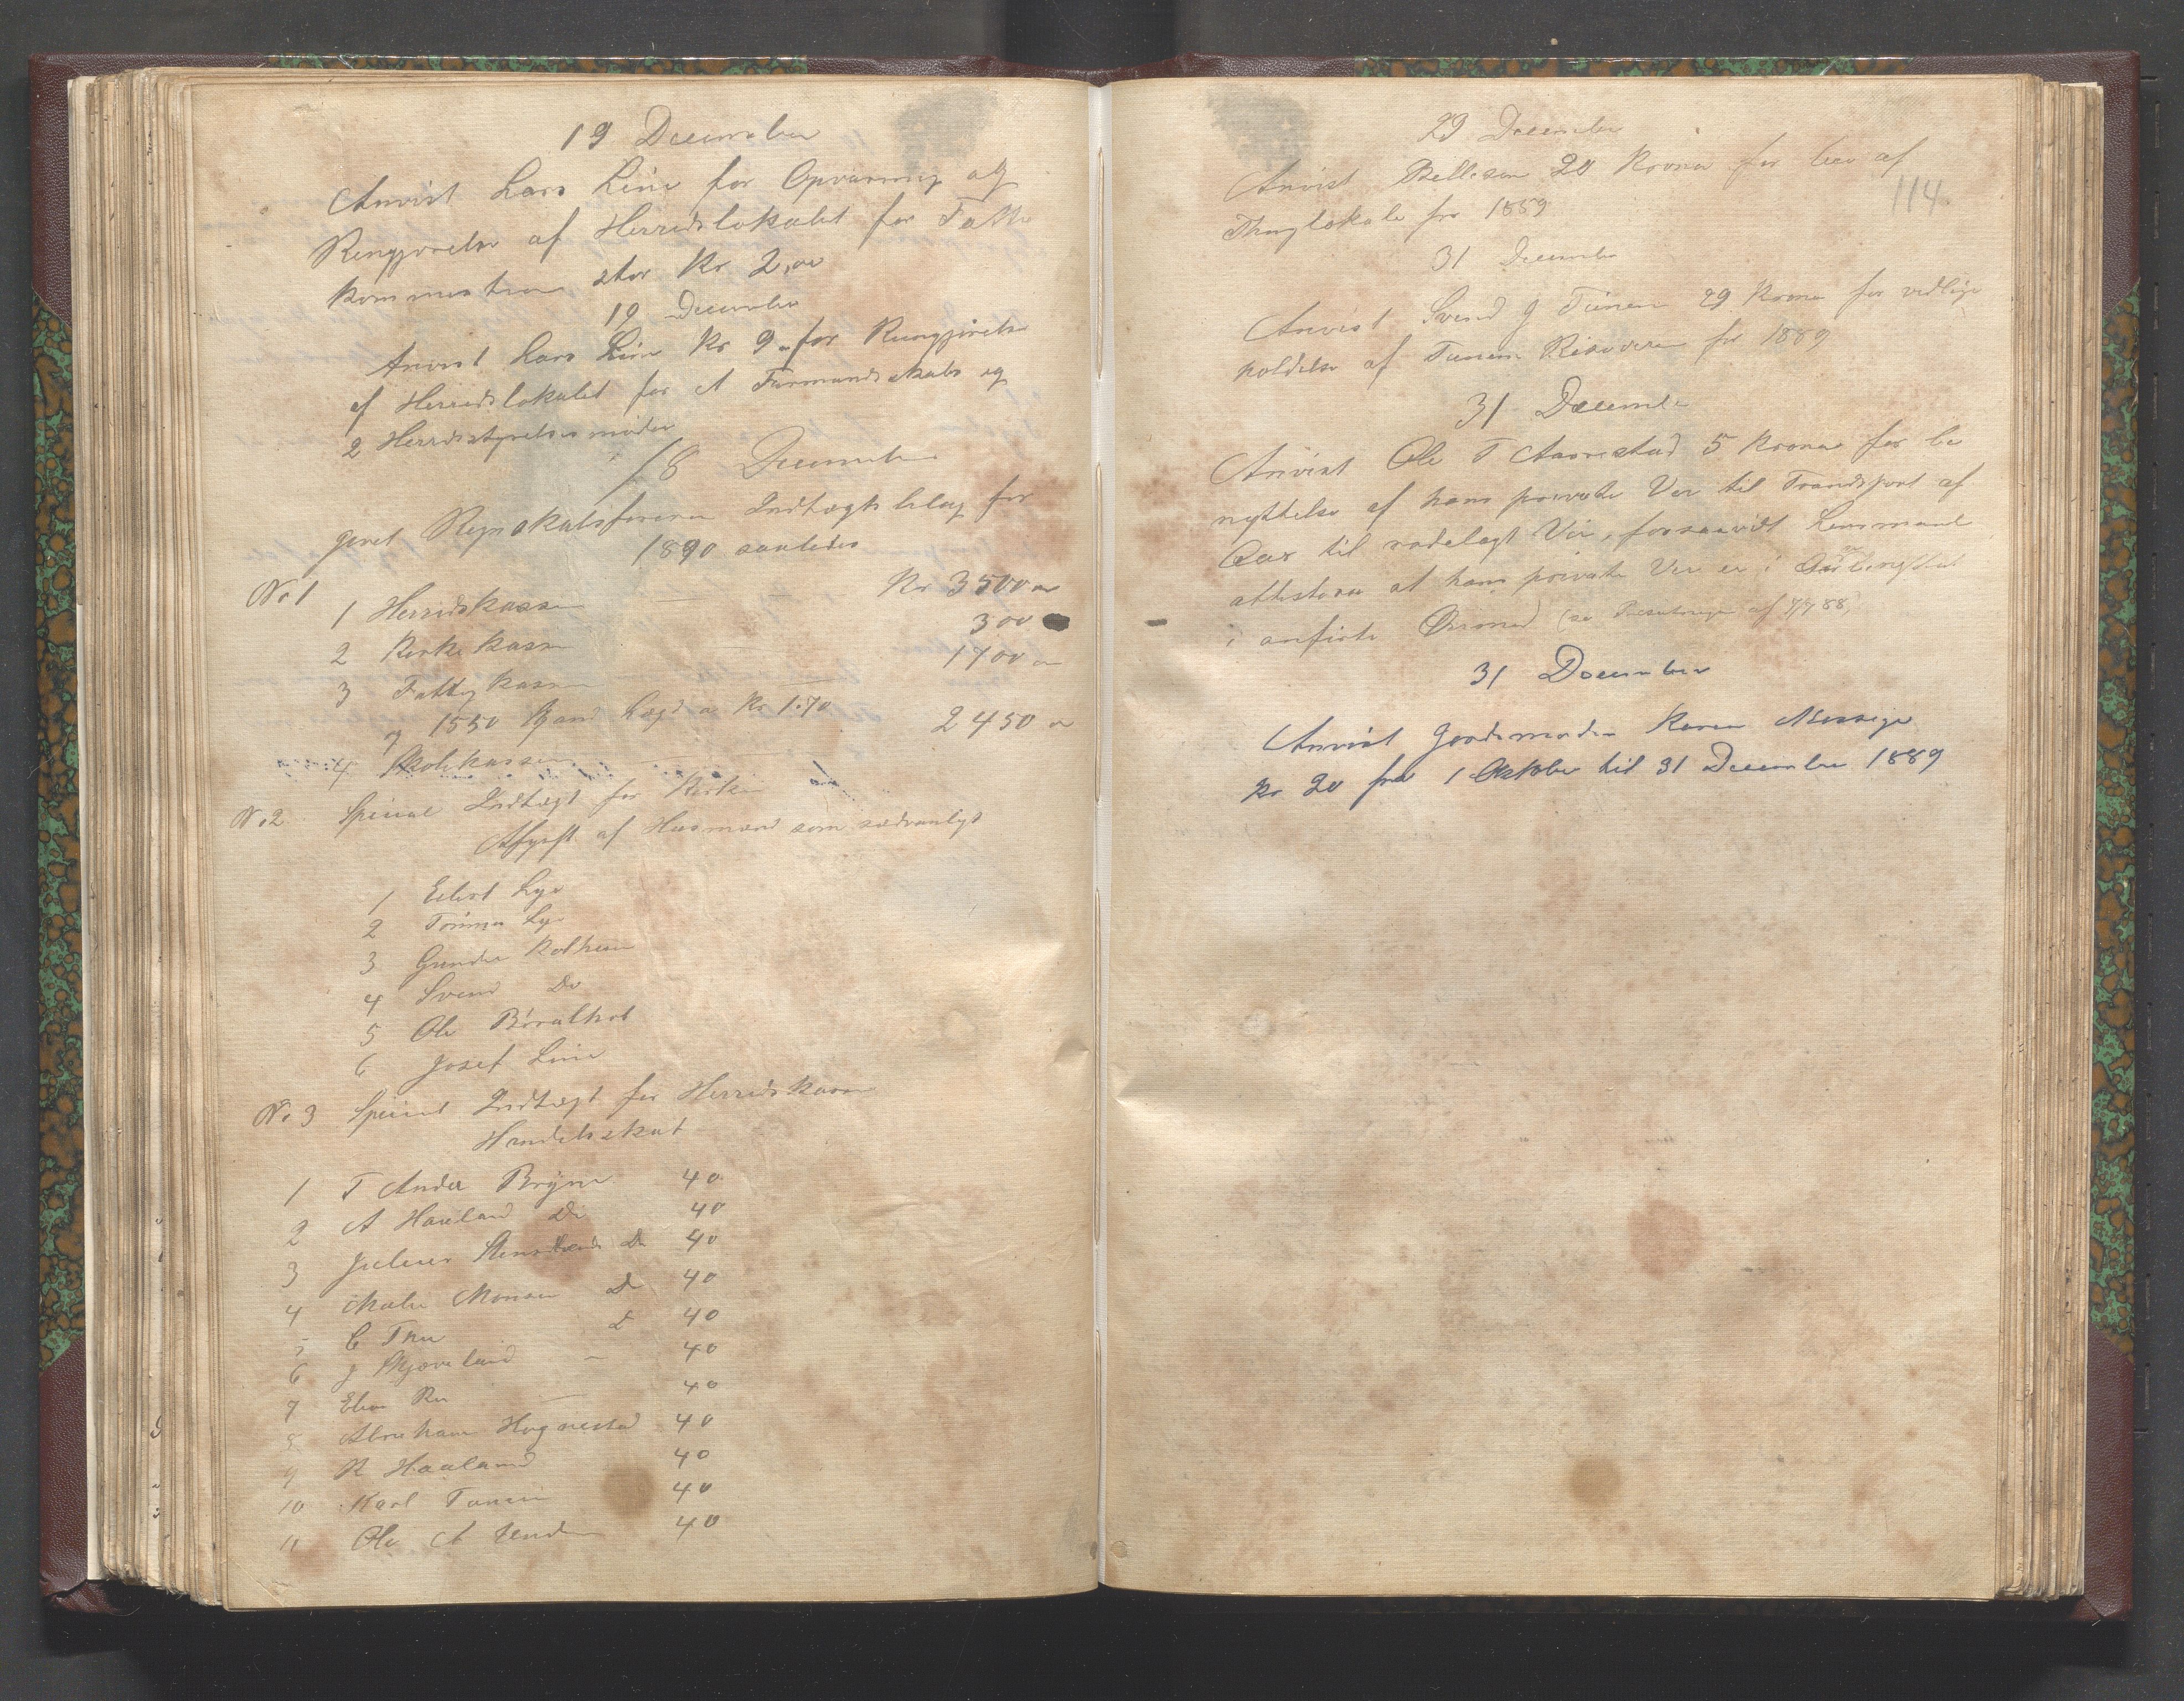 19 December
Anvist Lars Line for Opvarming og
Rengjørelse af Herredslokalet for Fattig
kommistionen stor Kr 2,00
19 December
Anvist Lars Line Kr 9 - for Rengjørelse
af Herredslokalet for 1 Formandskabs og
2 Herredsstyrelses møder
18 December
givet Regnskabsføreren Indtægtsbilag for
1890 saaledes
No 1
1 Herredskassen Kr 3500 "
2 Kirkekassen 300
3 Fattigkassen 1700 "
og 1550 Lægd a Kr 1.70
4 Skolekassen 2450 "
No 2 Speciel Indtægt for Kirken
Afgift af Husmænd som sædvanligt
1 Eilert Lye
2 Tønnes Lye
3 Gunder Kolheim
4 Svend Do
5 Ole
6 Josef Line
No 3 Speciel Indtægt for Herredskassen
Handelsskat
1 T Anda Bryne 40
2 A Haaland Do 40
3 Do 40
4 Male Monsen Do 40
5 C Thu D 40
6 J Skjæveland — 40
7 Ree — 40
8 Abraham Hognestad 40
9 R Haaland 40
10 Karl Tunem 40
11 Ole A 40
29 December
Anvist Pellesen 20 Kroner for leie af
114.
Thinglokale for 1889
31 December
Anvist Svend J Tunem 29 Kroner for vedlige
holdelse af Tunem for 1889
31 December
Anvist Ole T Aarrestad 5 Kroner for be
nyttelse af hans private Vei til Transport af
til rodelagt Vei, forsaavidt Lensmand
attesterer at hans private Vei er i
i anførte Øiemed (se af 4/7 88)
31 December
Anvist Jordemoder Karen Mossige
Kr 20 fra 1 Oktober til 31 December 1889